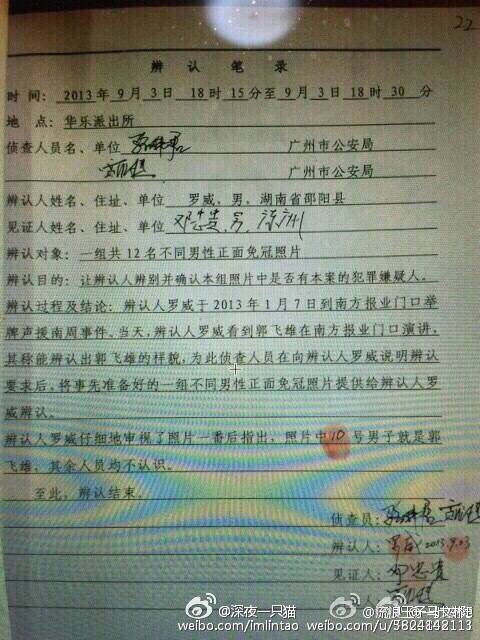 22
辨 认 笔 录
时 间： 2013 年 9 月 3 日 18 时 15 分至 9 月 3 日 18 时 30 分
地 点：华乐派出所
侦查人员名、单位 广州市公安局
广州市公安局
辨认人姓名、住址、单位 罗威，男，湖南省邵阳县
见证人姓名、住址、单位 邓忠贵，男，
辨认对象： 一组共 12 名不同男性正面免冠照片
辨认目的：让辨认人辨别并确认本组照片中是否有本案的犯罪嫌疑人。
辨认过程及结论：辨认人罗威于 2013 年 1 月 7 日到南方报业门口举
牌声援南周事件。当天，辨认人罗威看到郭飞雄在南方报业门口演讲，
其称能辨认出郭飞雄的样貌，为此侦查人员在向辨认人罗威说明辨认
要求后，将事先准备好的一组不同男性正面免冠照片提供给辨认人罗
威辨认。
辨认人罗威仔细地审视了照片一番后指出，照片中 10 号男子就是郭
飞雄，其余人员均不认识。
至此，辨认结束。
侦查员：
辨认人：罗威 2013.9.03
见证人：邓忠贵
人：
@深夜一只猫
weibo.com/imlintao
weibo.com/u/